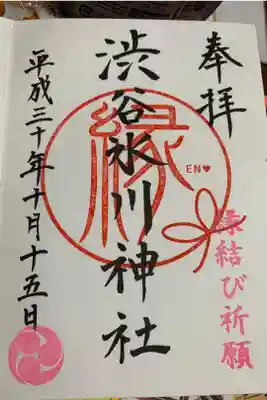 奉拝
縁結び祈願
渋谷氷川神社
縁
EN♥
平成三十年十月十五日